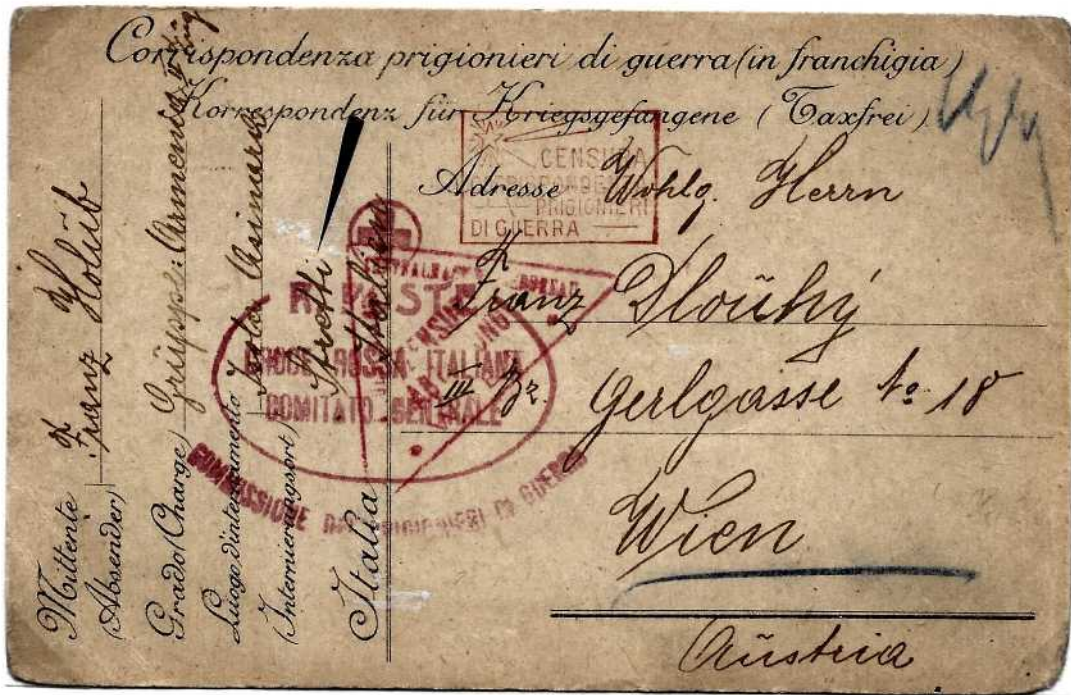 Corrispondenza prigionieri di guerra (in franchigia)
Korrespondenz für Kriegsgefangene (Taxfrei)
CENSURA
PRIGIONIERI
DI GUERRA
Adresse Wohlg. Herrn
Franz Dloúhý
III Bz. Gerlgasse No 18
Wien
Aústria
Mittente Franz Holúb
(Absender)
Grado (Charge) Grúppe: Armenia
Luogo d'internamento Isola Asinara
(Internierungsort) Stretti
Italia Italien
CROCE ROSSA ITALIANA
COMITATO CENTRALE
COMMISSIONE DEI PRIGIONIERI DI GUERRA